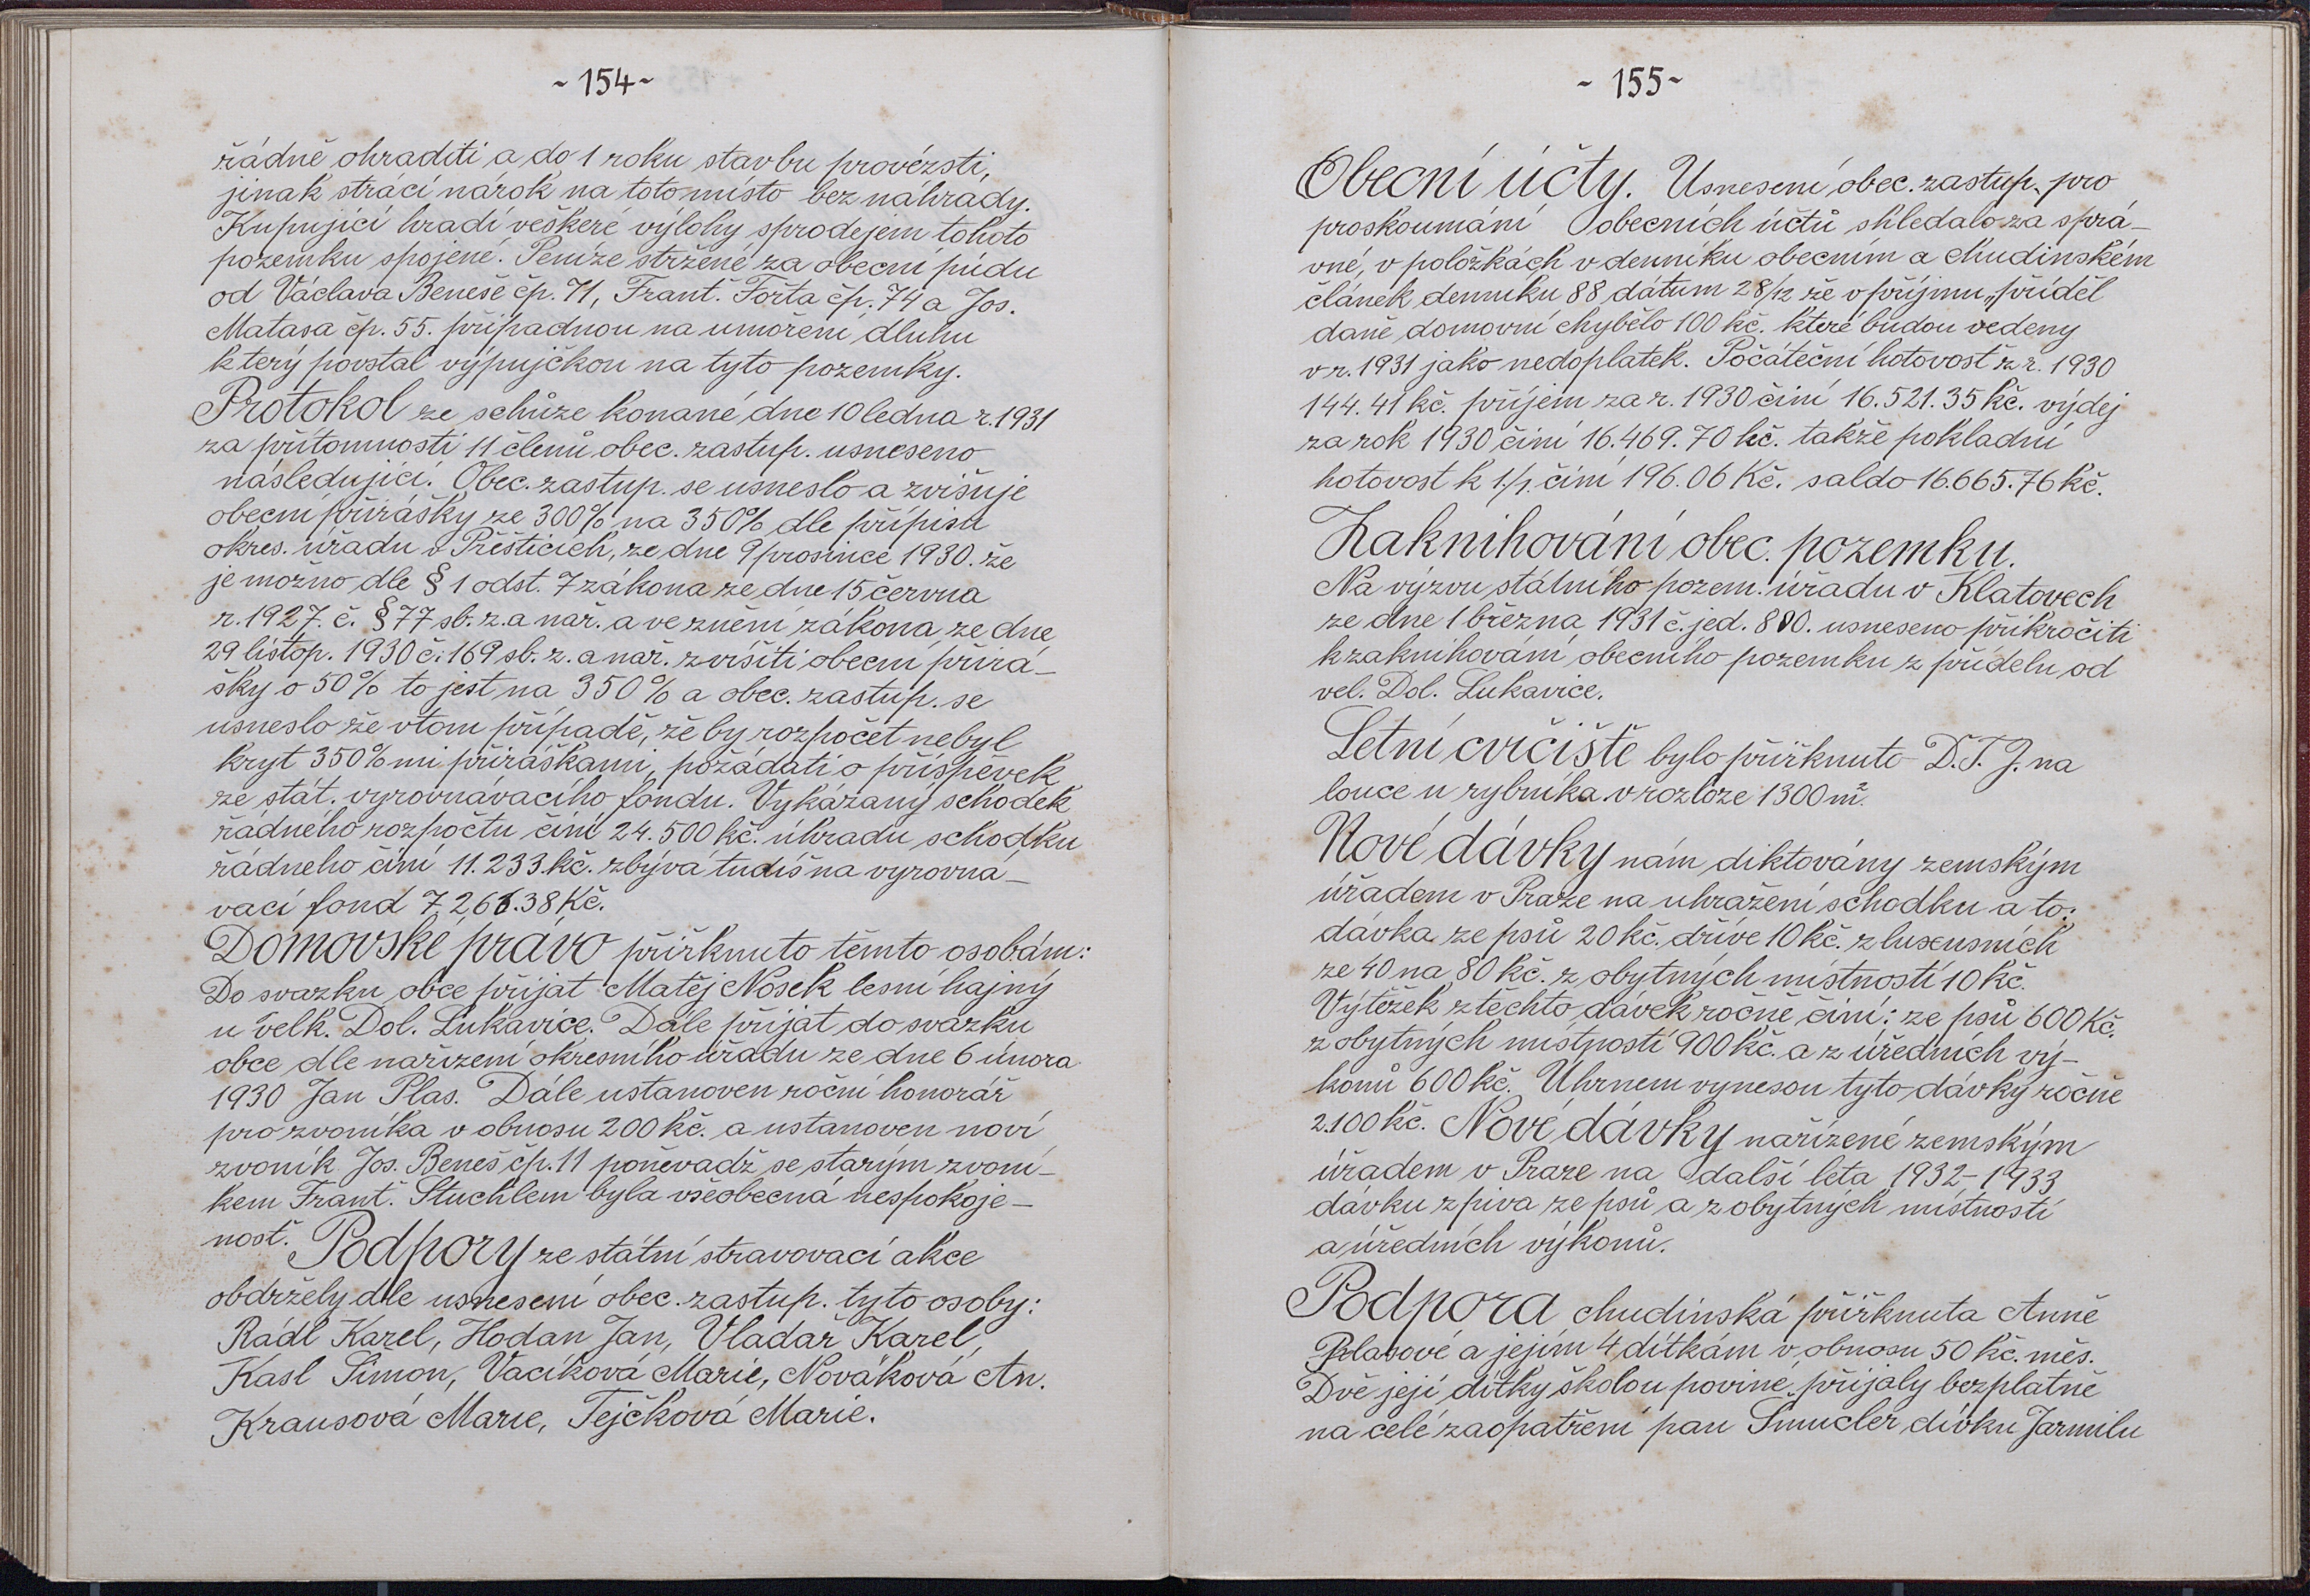 ~ 154 ~
řádně ohraditi a do 1 roku stavbu provézsti,
jinak stráci nárok na toto místo bez náhrady.
Kupující hradí veškeré výlohy sprodejem tohoto
pozemku spojené. Peníze stržené za obecní půdu
od Václava Beneše čp. 71, Frant. Fořta čp. 74 a Jos.
Matasa čp. 55. připadnou na umoření dluhu
který povstal výpujčkou na tyto pozemky.
Protokol ze schůze konané dne 10 ledna r. 1931
za přítomnosti 11 členů obec. zastup. usneseno
následující. Obec. zastup. se usneslo a zvišuje
obecní přirášky ze 300% na 350% dle přípisu
okres. úřadu v Přešticích, ze dne 9 prosince 1930. že
je možno dle § 1 odst. 7 zákona ze dne 15 června
r. 1927. č. § 77 sb. z. a nař. a ve znění zákona ze dne
29 listop. 1930 č. 169 sb. z. a nař. zvíšiti obecní přirá-
šky o 50% to jest na 350% a obec. zastup. se
usneslo že vtom případě, že by rozpočet nebyl
kryt 350% mi přiráškami, požádati o příspěvek
ze stát. vyrovnávacího fondu. Vykázaný schodek
řádného rozpočtu činí 24.500 kč. úhradu schodku
řádneho činí 11.233 kč. zbývá tudíš na vyrovná-
vací fond 7.266.38 Kč.
Domovské právo přiřknuto těmto osobám:
Do svazku obce přijat Matěj Nosek lesní hajný
u velk. Dol. Lukavice. Dále přijat do svazku
obce dle nařízení okresního úřadu ze dne 6 února
1930 Jan Plas. Dále ustanoven roční honorář
pro zvoníka v obnosu 200 Kč. a ustanoven noví
zvoník Jos. Beneš čp. 11 poněvadž se starým zvoní-
kem Frant. Stuchlem byla všeobecná nespokoje-
nost. Podpory ze státní stravovací akce
obdržely dle usnesení obec. zastup. tyto osoby:
Rádl Karel, Hodan Jan, Vladař Karel,
Kasl Šimon, Vacíková Marie, Nováková An.
Krausová Marie, Tejčková Marie.
~ 155 ~
Obecní účty. Usnesení obec. zastup. pro
proskoumání obecních účtů shledalo za sprá-
vné, v položkách v denníku obecním a chudinském
článek denníku 88 dátum 28/12 že v příjmu „příděl
daně domovní chybělo 100 kč. které budou vedeny
v r. 1931 jako nedoplatek. Počáteční hotovost z r. 1930
144.41 kč. příjem za r. 1930 činí 16.521.35 Kč. výdej
za rok 1930 činí 16.469.70 kč. takže pokladní
hotovost k 1./1. činí 196.06 Kč. saldo 16.665.76 kč.
Zaknihování obec. pozemku.
Na výzvu státního pozem. úřadu v Klatovech
ze dne 1 března 1931 č. jed. 880. usneseno přikročiti
k zaknihování obecního pozemku z přídělu od
vel. Dol. Lukavice.
Letní cvičiště bylo přiřknuto D.T.J. na
louce u rybníka v rozloze 1300 m².
Nové dávky nám diktovány zemským
úřadem v Praze na uhražení schodku a to:
dávka ze psů 20 kč. dříve 10 kč. z luxusních
ze 40 na 80 kč. z obytných místností 10 kč.
Výtěžek z těchto dávek ročně činí: ze psů 600 Kč.
z obytných místností 900 kč. a z úředních vý-
konů 600 kč. Úhrnem vynesou tyto dávky ročně
2.100 kč. Nové dávky nařízené zemským
úřadem v Praze na další leta 1932-1933
dávku z piva ze psů a z obytných místností
a úředních výkonů.
Podpora chudinská přiřknuta Anně
Plasové a jejím 4 dítkám v obnosu 50 kč. měs.
Dvě její dítky školou poviné, přijaly bezplatně
na celé zaopatření pan Šmucler dívku Jarmilu